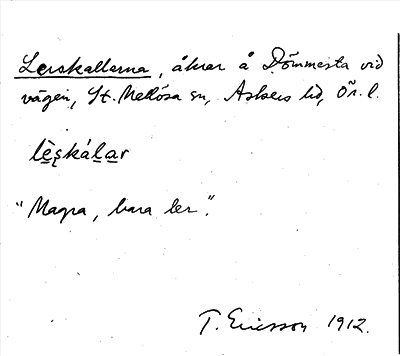 Lerskallarna, åkrar å Dömmesta vid
vägen, St. Mellösa sn, Askers hd, Ör. l.
lè̱skála̱r
"Magra, bara ler."
T. Ericsson 1912.